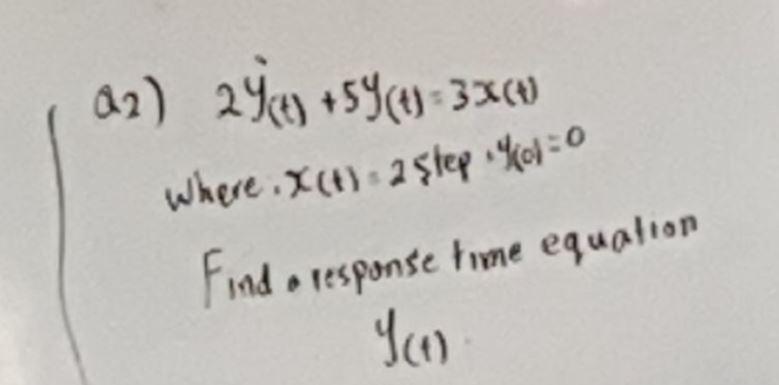 Q2) 2ẏ(t) + 5y(t) = 3x(t)
where . x(t) = 2 step . y(0) = 0
Find a response time equation
y(t)